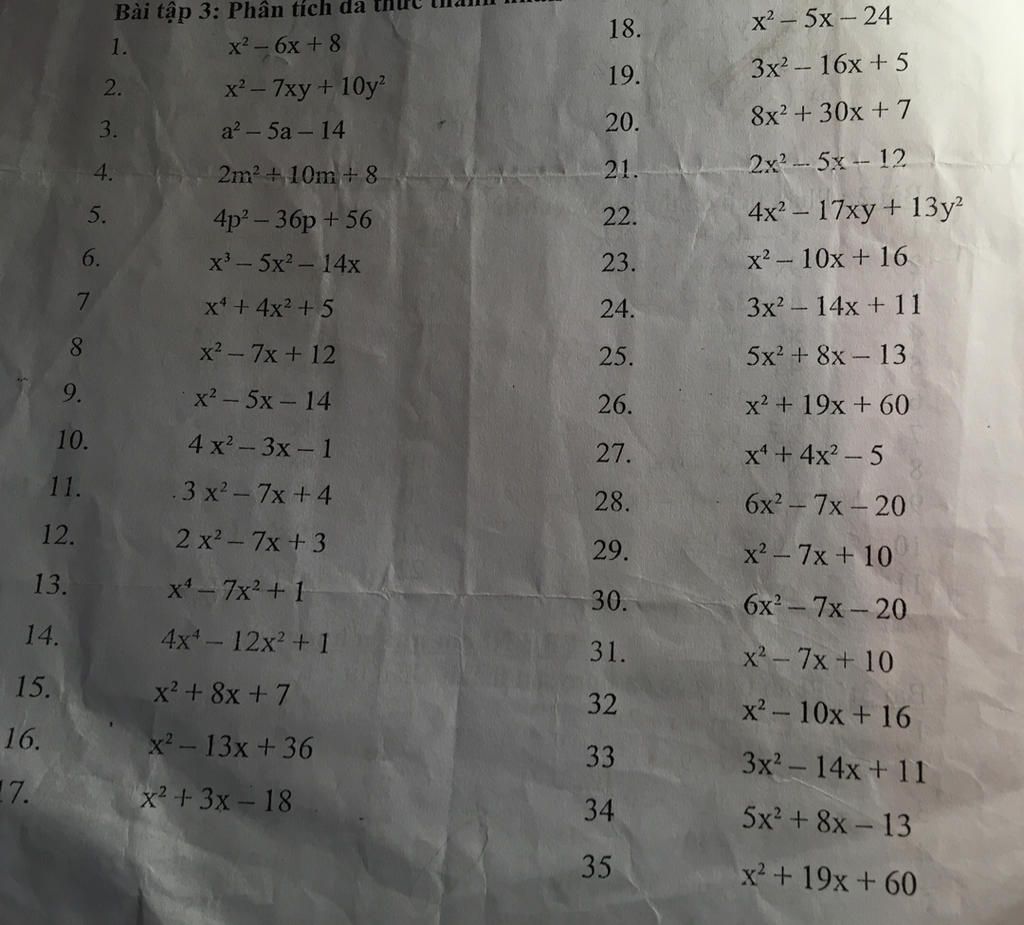 Bài tập 3: Phân tích đa thức thành
1. x² – 6x + 8
2. x² – 7xy + 10y²
3. a² – 5a – 14
4. 2m² + 10m + 8
5. 4p² – 36p + 56
6. x³ – 5x² – 14x
7 x⁴ + 4x² + 5
8 x² – 7x + 12
9. x² – 5x – 14
10. 4 x² – 3x – 1
11. 3 x² – 7x + 4
12. 2 x² – 7x + 3
13. x⁴ – 7x² + 1
14. 4x⁴ – 12x² + 1
15. x² + 8x + 7
16. x² – 13x + 36
17. x² + 3x – 18
18. x² – 5x – 24
19. 3x² – 16x + 5
20. 8x² + 30x + 7
21. 2x² – 5x – 12
22. 4x² – 17xy + 13y²
23. x² – 10x + 16
24. 3x² – 14x + 11
25. 5x² + 8x – 13
26. x² + 19x + 60
27. x⁴ + 4x² – 5
28. 6x² – 7x – 20
29. x² – 7x + 10
30. 6x² – 7x – 20
31. x² – 7x + 10
32 x² – 10x + 16
33 3x² – 14x + 11
34 5x² + 8x – 13
35 x² + 19x + 60